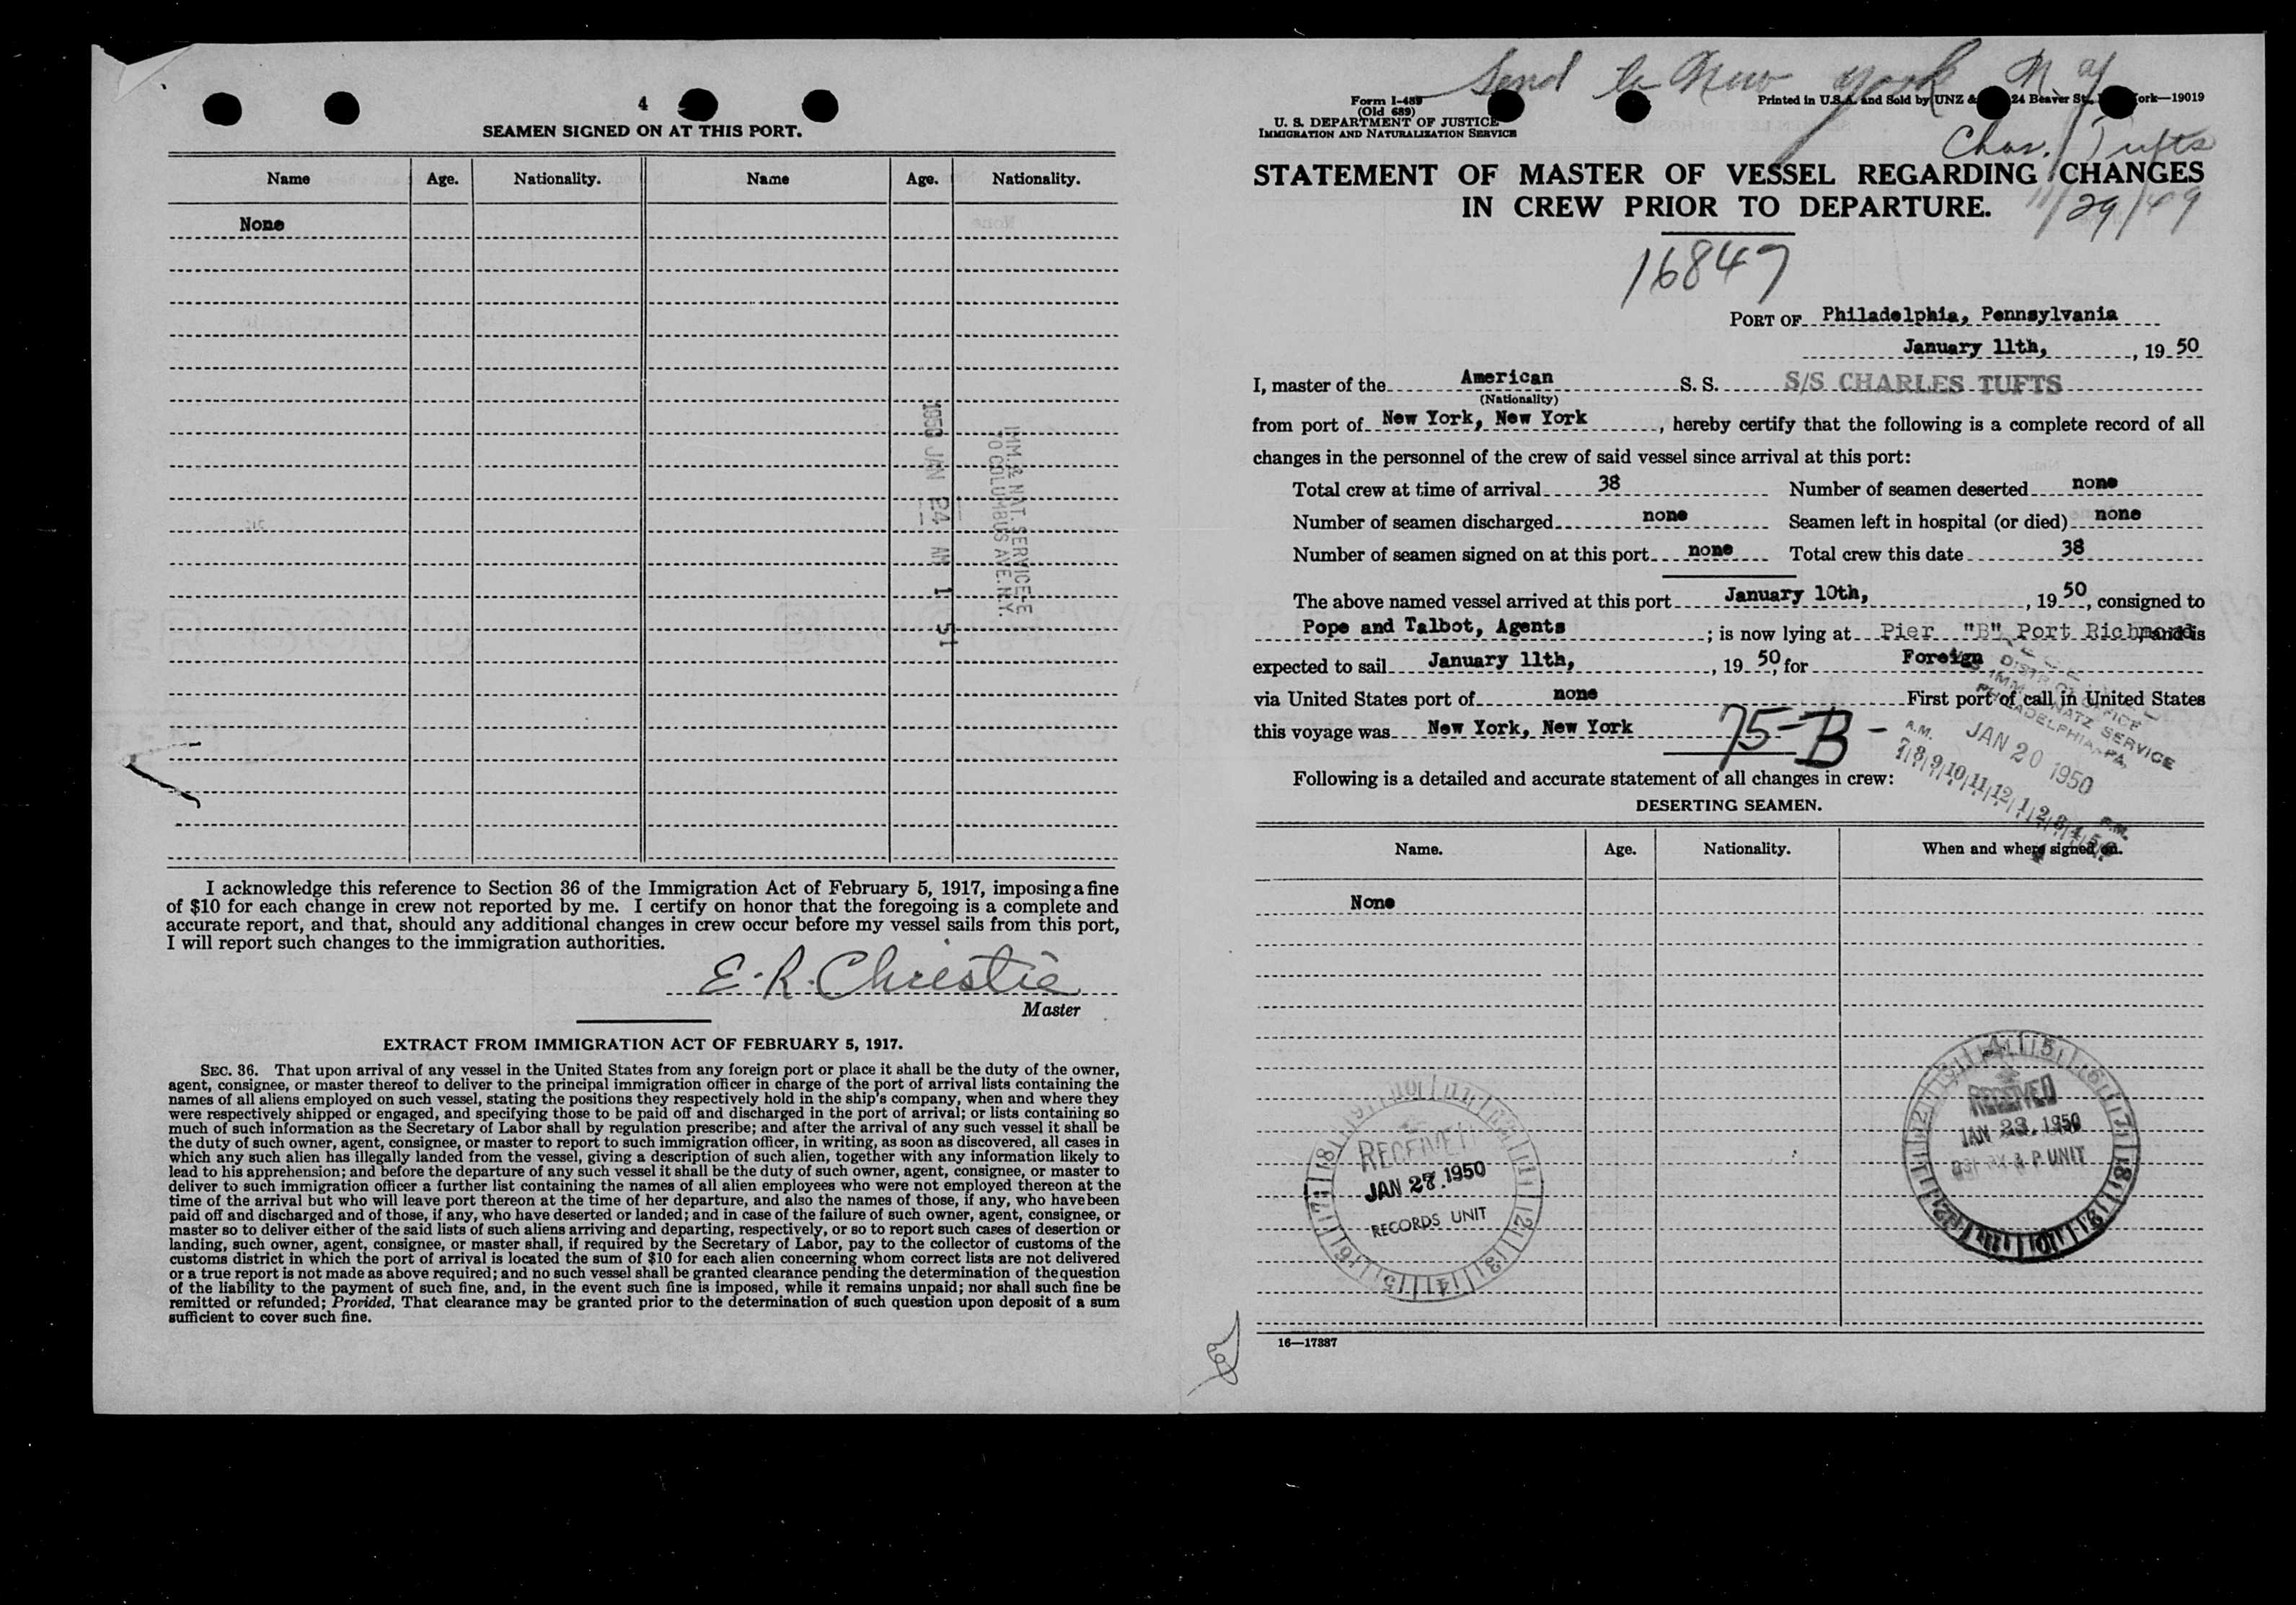 4
SEAMEN SIGNED ON AT THIS PORT.
Name Age. Nationality. Name Age. Nationality.
None
1950 JAN 24 AM 1 51
IMM & NAT. SERVICE
70 COLUMBUS AVE. N.Y.
I acknowledge this reference to Section 36 of the Immigration Act of February 5, 1917, imposing a fine
of $10 for each change in crew not reported by me. I certify on honor that the foregoing is a complete and
accurate report, and that, should any additional changes in crew occur before my vessel sails from this port,
I will report such changes to the immigration authorities.
E. R. Christie
Master
EXTRACT FROM IMMIGRATION ACT OF FEBRUARY 5, 1917.
SEC. 36. That upon arrival of any vessel in the United States from any foreign port or place it shall be the duty of the owner,
agent, consignee, or master thereof to deliver to the principal immigration officer in charge of the port of arrival lists containing the
names of all aliens employed on such vessel, stating the positions they respectively hold in the ship's company, when and where they
were respectively shipped or engaged, and specifying those to be paid off and discharged in the port of arrival; or lists containing so
much of such information as the Secretary of Labor shall by regulation prescribe; and after the arrival of any such vessel it shall be
the duty of such owner, agent, consignee, or master to report to such immigration officer, in writing, as soon as discovered, all cases in
which any such alien has illegally landed from the vessel, giving a description of such alien, together with any information likely to
lead to his apprehension; and before the departure of any such vessel it shall be the duty of such owner, agent, consignee, or master to
deliver to such immigration officer a further list containing the names of all alien employees who were not employed thereon at the
time of the arrival but who will leave port thereon at the time of her departure, and also the names of those, if any, who have been
paid off and discharged and of those, if any, who have deserted or landed; and in case of the failure of such owner, agent, consignee, or
master so to deliver either of the said lists of such aliens arriving and departing, respectively, or so to report such cases of desertion or
landing, such owner, agent, consignee, or master shall, if required by the Secretary of Labor, pay to the collector of customs of the
customs district in which the port of arrival is located the sum of $10 for each alien concerning whom correct lists are not delivered
or a true report is not made as above required; and no such vessel shall be granted clearance pending the determination of the question
of the liability to the payment of such fine, and, in the event such fine is imposed, while it remains unpaid; nor shall such fine be
remitted or refunded; Provided, That clearance may be granted prior to the determination of such question upon deposit of a sum
sufficient to cover such fine.
Send to New York N Y
Form I-489
(Old 689)
U. S. DEPARTMENT OF JUSTICE
IMMIGRATION AND NATURALIZATION SERVICE
Printed in U.S.A. and Sold by UNZ & 24 Beaver St., ork—19019
Chas. Tufts
STATEMENT OF MASTER OF VESSEL REGARDING CHANGES
IN CREW PRIOR TO DEPARTURE.
11/29/49
16847
PORT OF Philadelphia, Pennsylvania
January 11th, , 19 50
I, master of the American S. S. S/S CHARLES TUFTS
(Nationality)
from port of New York, New York , hereby certify that the following is a complete record of all
changes in the personnel of the crew of said vessel since arrival at this port:
Total crew at time of arrival 38 Number of seamen deserted none
Number of seamen discharged none Seamen left in hospital (or died) none
Number of seamen signed on at this port none Total crew this date 38
The above named vessel arrived at this port January 10th, , 19 50, consigned to
Pope and Talbot, Agents ; is now lying at Pier "B", Port Richmond and is
expected to sail January 11th, , 19 50, for Foreign
via United States port of none First port of call in United States
this voyage was New York, New York
75-B-
DISTRICT OFFICE
IMM & NATZ SERVICE
PHILADELPHIA, PA.
A.M. JAN 20 1950 P.M.
7 8 9 10 11 12 1 2 3 4 5 6
Following is a detailed and accurate statement of all changes in crew:
DESERTING SEAMEN.
Name. Age. Nationality. When and where signed on.
None
RECEIVED
JAN 27 1950
RECORDS UNIT
RECEIVED
JAN 23 1950
& P UNIT
16—17387